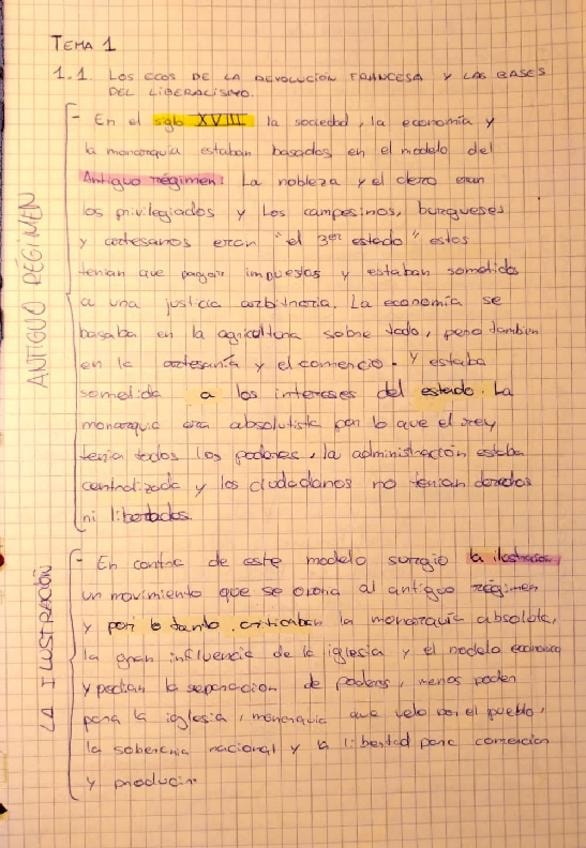 TEMA 1
1.1. LOS ECOS DE LA REVOLUCIÓN FRANCESA Y LAS BASES
DEL LIBERALISMO.
ANTIGUO RÉGIMEN
- En el siglo XVIII la sociedad, la economía y
la monarquía estaban basados en el modelo del
Antiguo régimen: La nobleza y el clero eran
los privilegiados y los campesinos, burgueses
y artesanos eran "el 3er estado" estos
tenian que pagar impuestos y estaban sometidos
a una justicia arbitraria. La economía se
basaba en la agricultura sobre todo, pero tambien
en la artesanía y el comercio. Y estaba
sometida a los intereses del estado. La
monarquia era absolutista por lo que el rey
tenia todos los poderes, la administración estaba
centralizada y los ciudadanos no tenian derechos
ni libertades.
LA ILUSTRACIÓN
- En contra de este modelo surgio la ilustracion
un movimiento que se oponia al antiguo régimen
y por lo tanto criticaban la monarquía absoluta,
la gran influencia de la iglesia y el modelo economico
y pedian la separacion de poderes, menos poder
para la iglesia, monarquia que vele por el pueblo,
la soberania nacional y la libertad para comerciar
y producir.